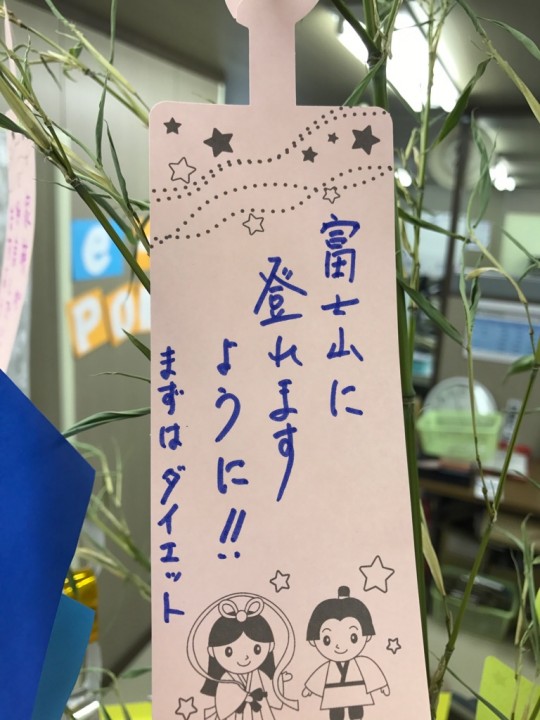 富士山に
登れます
ように!!
まずはダイエット